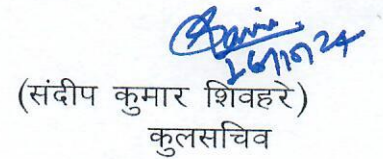 16/10/24
(संदीप कुमार शिवहरे)
कुलसचिव